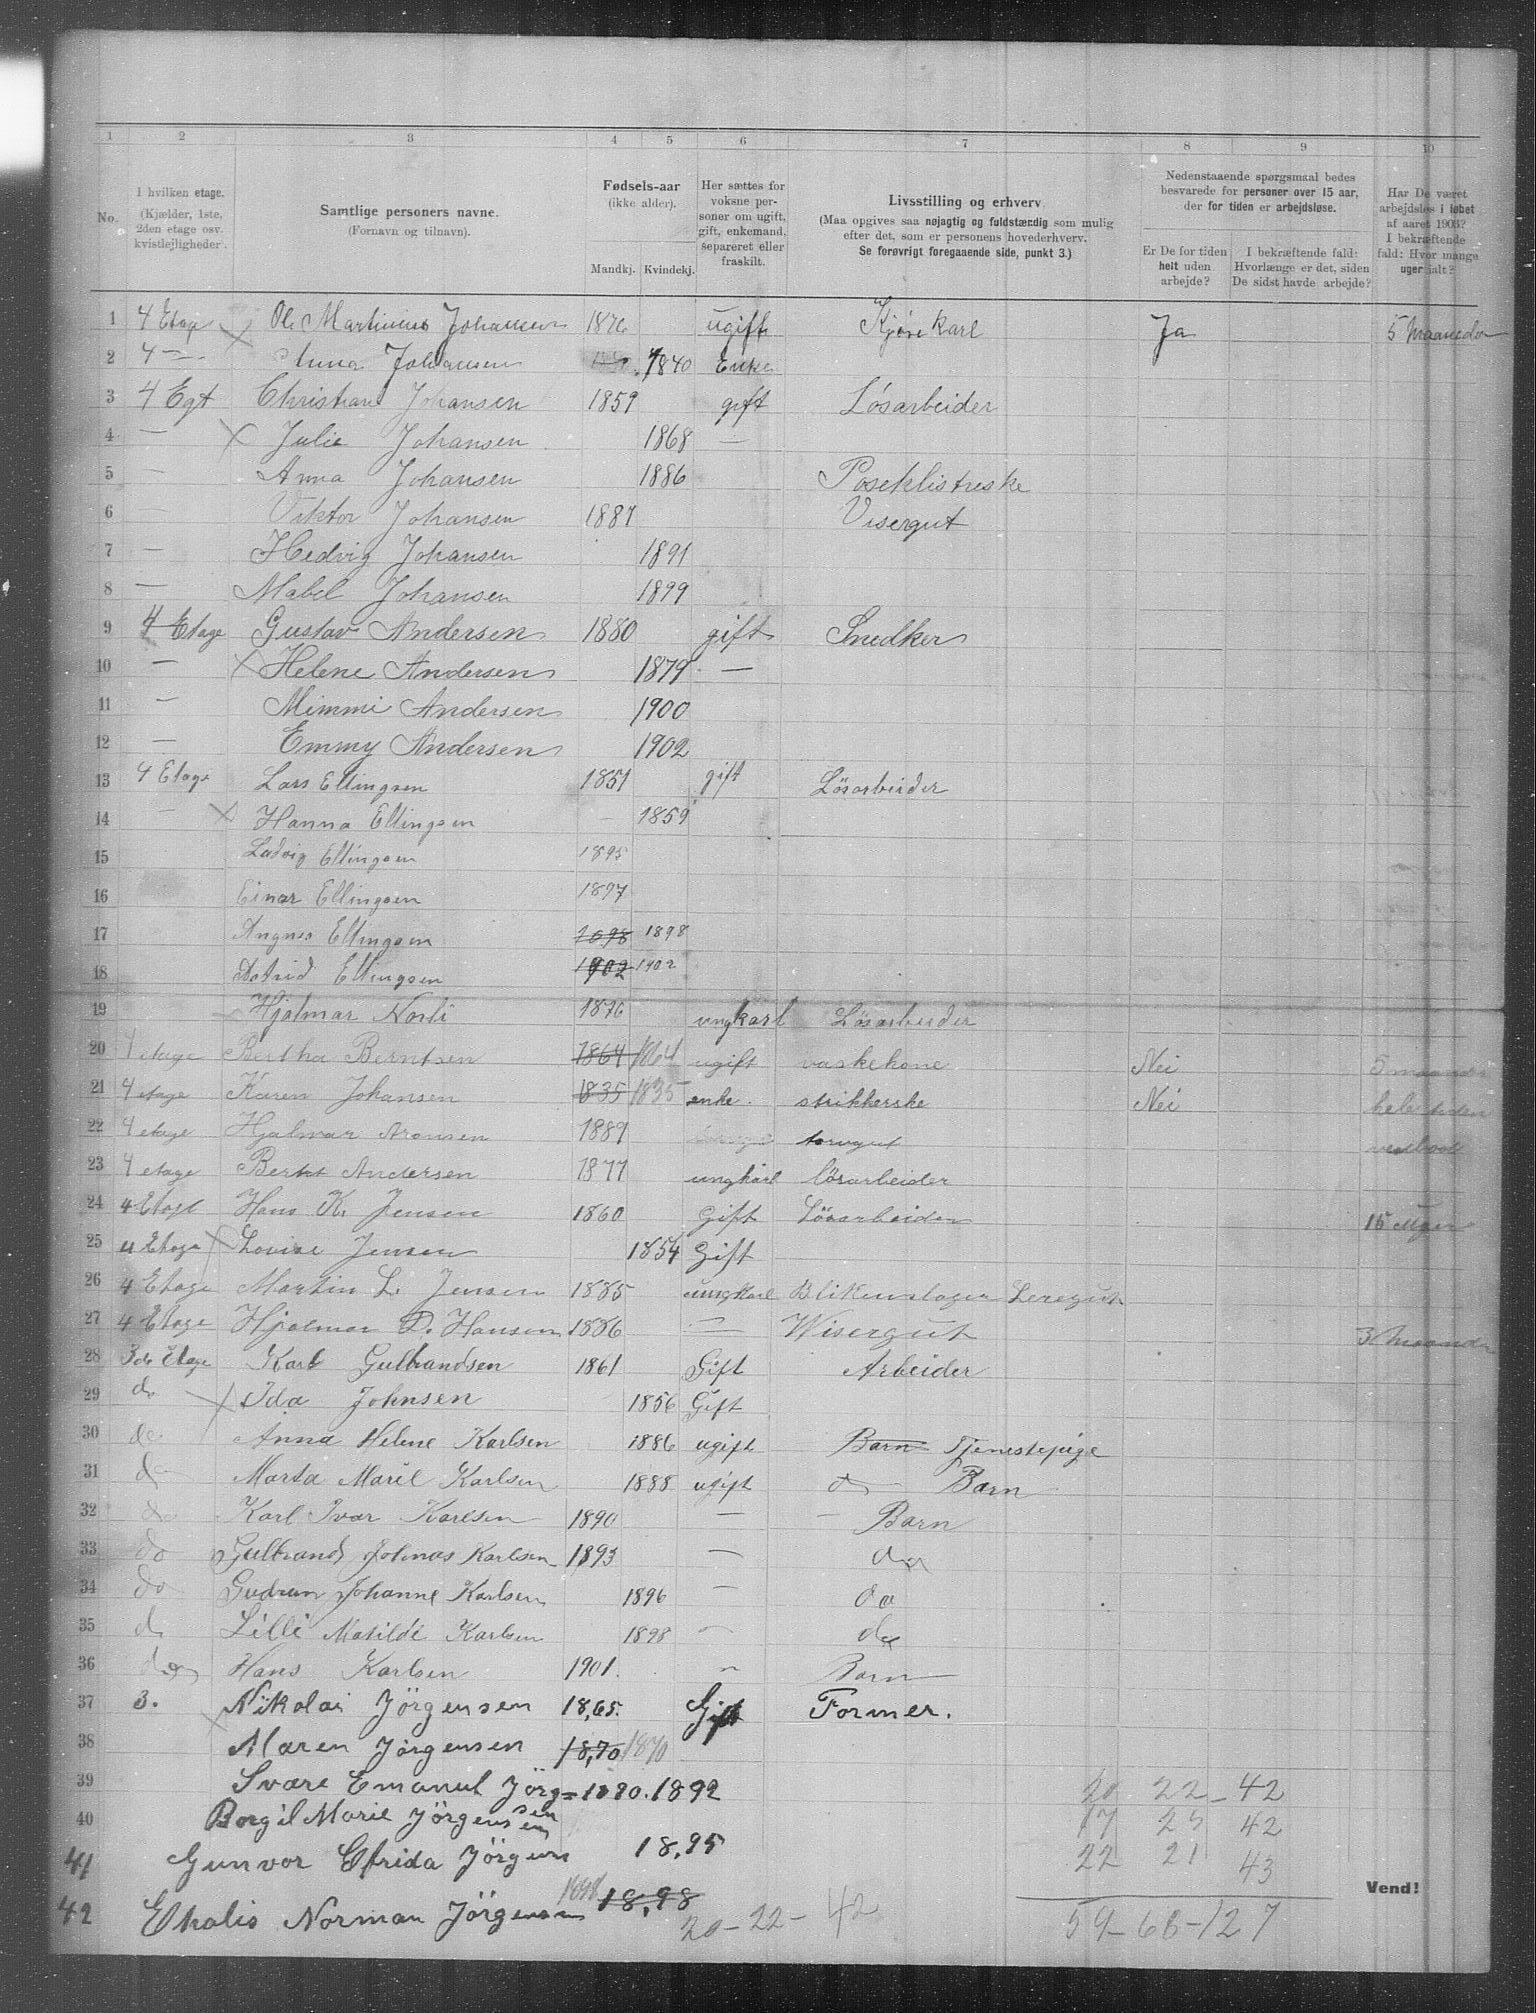 1 2 3 4 5 6 7 8 9 10
No.
I hvilken etage.
(Kjælder, 1ste, 2den etage osv. kvistlejligheder).
Samtlige personers navne.
(Fornavn og tilnavn).
Fødsels-aar
(ikke alder).
Mandkj. Kvindekj.
Her sættes for voksne personer om ugift, gift, enkemand, separeret eller fraskilt.
Livsstilling og erhverv.
(Maa opgives saa nøjagtig og fuldstændig som mulig efter det, som er personens hovederhverv.
Se forøvrigt foregaaende side, punkt 3.)
Nedenstaaende spørgsmaal bedes besvarede for personer over 15 aar, der for tiden er arbejdsløse.
Er De for tiden helt uden arbejde?
I bekræftende fald: Hvorlænge er det, siden De sidst havde arbejde?
Har De været arbejdsløs i løbet af aaret 1903? I bekræftende fald: Hvor mange uger ialt?
1 4 Etage Ole Martinius Johansen 1876 ugift Kjørekarl Ja 5 Maaneder
2 4 — Anna Johansen 1840 Enke
3 4 Egt Christian Johansen 1859 gift Løsarbeider
4 — Julie Johansen 1868 —
5 — Anna Johansen 1886 Poseklistreske
6 Viktor Johansen 1887 Visergut
7 — Hedvig Johansen 1891
8 — Mabel Johansen 1899
9 4 Etage Gustav Andersen 1880 gift Snedker
10 — Helene Andersen 1879 —
11 — Mimmi Andersen 1900
12 — Emmy Andersen 1902
13 4 Etage Lars Ellingsen 1851 gift Lösarbeider
14 Hanna Ellingsen 1859
15 Ludvig Ellingsen 1895
16 Einar Ellingsen 1897
17 Angnes Ellingsen 1898 1898
18 Astrid Ellingsen 1902 1902
19 Hjalmar Norli 1876 ungkarl Lösarbeider
20 4 etage Bertha Berntsen 1864 1864 ugift vaskekone Nei 5 maander
21 4 etage Karen Johansen 1835 1835 enke strikkerske Nei hele tiden
22 4 etage Hjalmar Aronsen 1889 torvgut
23 4 etage Bernt Andersen 1877 ungkarl lösarbeider
24 4 Etage Hans K. Jensen 1860 Gift Lösarbeider 15 Uger
25 4 Etage Lovise Jensen 1854 Gift
26 4 Etage Martin L. Jensen 1885 ungkarl Blikenslager Leregut
27 4 Etage Hjalmar D. Hansen 1886 — Wisergut 3 Maander
28 3de Etage Karl Gulbrandsen 1861 Gift Arbeider
29 do Ida Johnsen 1856 Gift
30 do Anna Helene Karlsen 1886 ugift Barn Tjenestepige
31 do Marta Marie Karlsen 1888 ugift do Barn
32 do Karl Ivar Karlsen 1890 — — Barn
33 do Gulbrand Johnas Karlsen 1893 — do
34 do Gudrun Johanne Karlsen 1896 — do
35 do Lilli Matilde Karlsen 1898 — do
36 do Hans Karlsen 1901. — Barn
37 3. Nikolai Jörgensen 18,65. Gift Former.
38 Maren Jörgensen 18,70 1870
39 Svare Emanuel Jörg= 1892 20 22 - 42
40 Borgil Marie Jörgensen 17 25 42
41 Gunvor Elfrida Jörgen 18,95 22 21 43
Vend!
42 Norman Jörgensen 1898 18,98 20 - 22 - 42 59 - 68 - 127